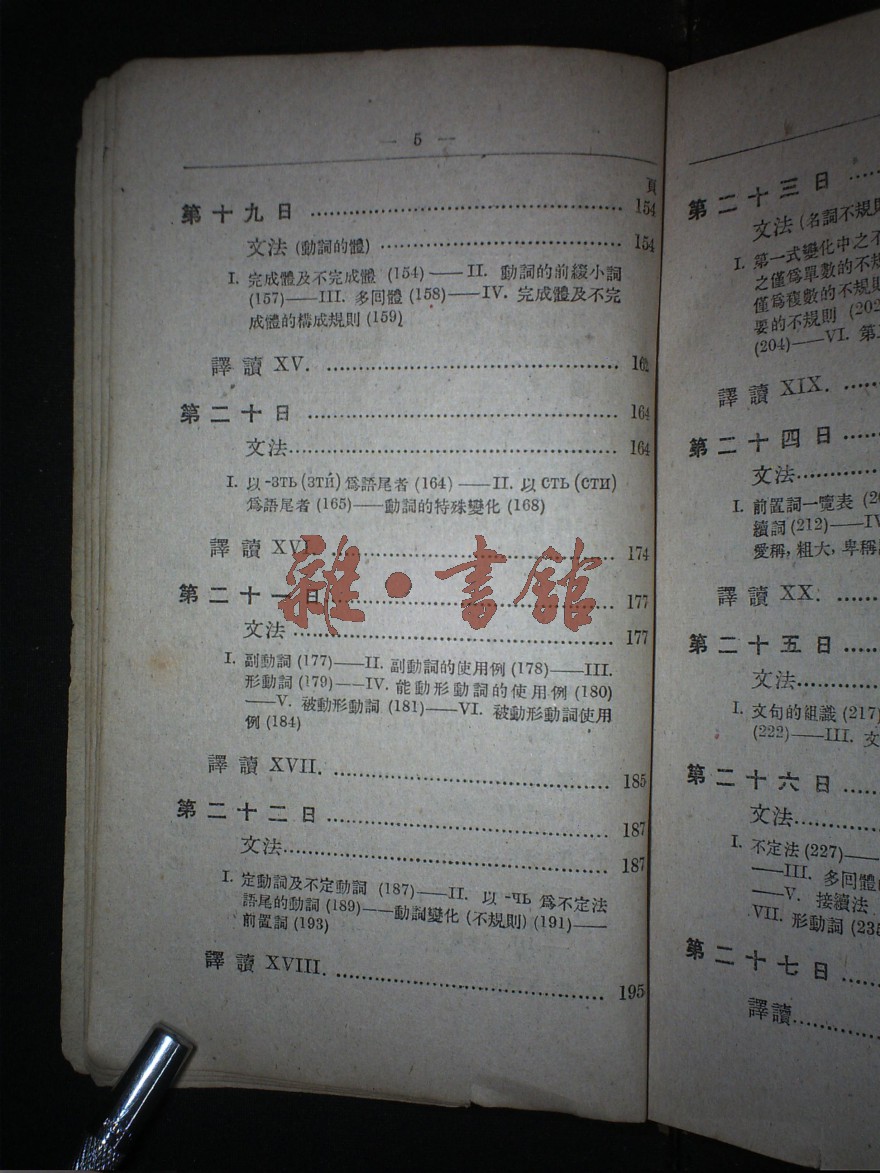 — 5 —
頁
第十九日 …… 154
文法 (動詞的體) …… 154
I. 完成體及不完成體 (154) ——II. 動詞的前綴小詞
(157)——III. 多回體 (158)——IV. 完成體及不完
成體的構成規則 (159)
譯讀 XV. …… 162
第二十日 …… 164
文法 …… 164
I. 以 -зть (зти́) 爲語尾者 (164) ——II. 以 сть (сти)
爲語尾者 (165)——動詞的特殊變化 (168)
譯讀 XVI. …… 174
第二十一日 …… 177
文法 …… 177
I. 副動詞 (177)——II. 副動詞的使用例 (178)——III.
形動詞 (179)——IV. 能動形動詞的使用例 (180)
——V. 被動形動詞 (181)——VI. 被動形動詞使用
例 (184)
譯讀 XVII. …… 185
第二十二日 …… 187
文法 …… 187
I. 定動詞及不定動詞 (187)——II. 以 -чь 爲不定法
語尾的動詞 (189)——動詞變化 (不規則) (191)——
前置詞 (193)
譯讀 XVIII. …… 195
雜·書館
第二十三日 ……
文法 (名詞不規則
I. 第一式變化中之不
之僅爲單數的不規
僅爲複數的不規則
要的不規則 (202
(204)——VI. 第
譯讀 XIX. ……
第二十四日 ……
文法 ……
I. 前置詞一覽表 (20
續詞 (212)——IV
愛稱, 粗大, 卑稱
譯讀 XX. ……
第二十五日 ……
文法 ……
I. 文句的組織 (217)
(222)——III. 文
第二十六日 ……
文法 ……
I. 不定法 (227)——
——III. 多回體
——V. 接續法
VII. 形動詞 (235
第二十七日 ……
譯讀 ……